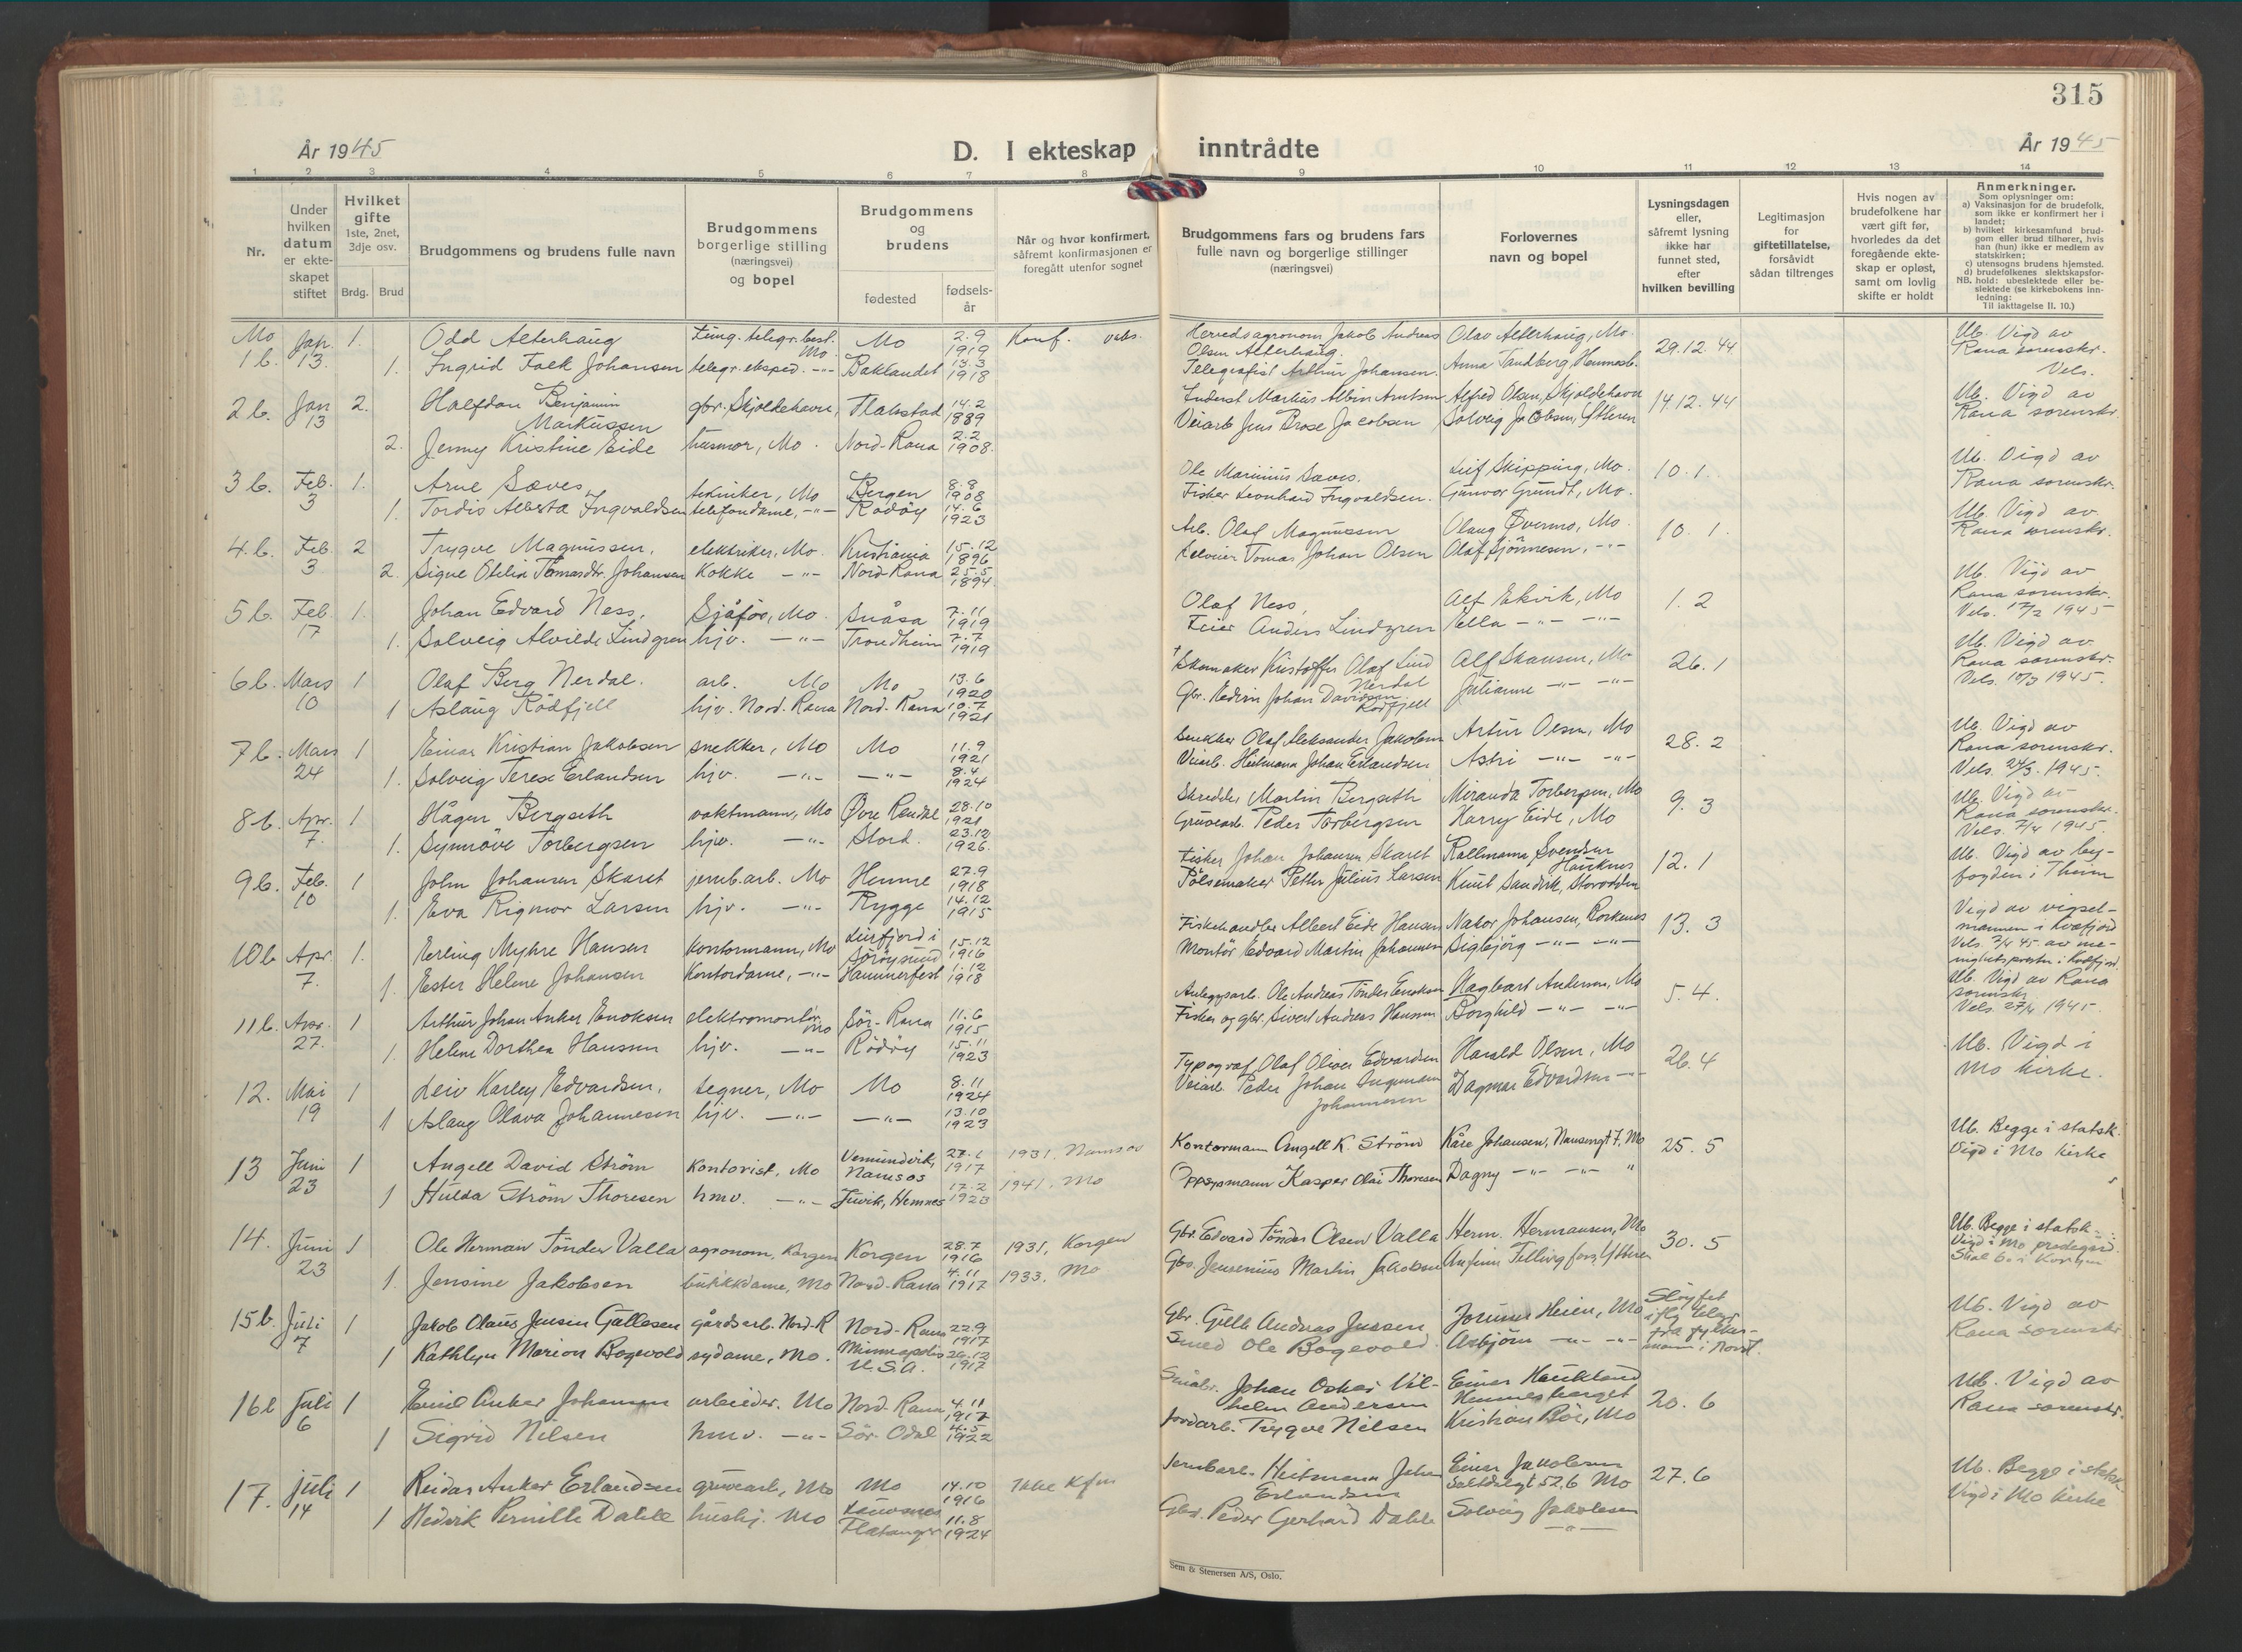 315
År 1945
D. I ekteskap inntrådte
År 1945
1 2 3 4 5 6 7 8 9 10 11 12 13 14
Nr.
Under hvilken datum er ekte-skapet stiftet
Hvilket gifte
1ste, 2net, 3dje osv.
Brdg. Brud
Brudgommens og brudens fulle navn
Brudgommens borgerlige stilling (næringsvei) og bopel
Brudgommens og brudens
fødested
fødsels-år
Når og hvor konfirmert, såfremt konfirmasjonen er foregått utenfor sognet
Brudgommens fars og brudens fars fulle navn og borgerlige stillinger (næringsvei)
Forlovernes navn og bopel
Lysningsdagen eller, såfremt lysning ikke har funnet sted, efter hvilken bevilling
Legitimasjon for giftetillatelse, forsåvidt sådan tiltrenges
Hvis nogen av brudefolkene har vært gift før, hvorledes da det foregående ekte-skap er opløst, samt om lovlig skifte er holdt
Anmerkninger.
Som oplysninger om:
a) Vaksinasjon for de brudefolk, som ikke er konfirmert her i landet;
b) hvilket kirkesamfund brud-gom eller brud tilhører, hvis han (hun) ikke er medlem av statskirken;
c) utensogns brudens hjemsted.
d) brudefolkenes slektskapsfor-hold: ubeslektede eller be-slektede (se kirkebokens inn-ledning:
NB. Til iakttagelse II. 10.)
Mo 1b. Jan. 13. 1. Odd Alterhaug Mo 2.9 1919 Konf. Herredsagronom Jakob Andreas Olsen Alterhaug. Olav Alterhaug, Mo. 29.12.44 Ub. Vigd av Rana sorenskr. Vels.
1. Ingrid Falk Johansen telegr. eksped. -"- Baklandet 13.3 1918 Telegrafist Arthur Johansen. Anna Tandberg,
2b. Jan 13 2. Halfdan Benjamin Markussen gbr. Skjoldehavn, Flakstad 14.2 1889 Alfred Olsen, Skjoldehavn 14.12.44 Ub. Vigd av Rana sorenskr.
2. Jenny Kristine Eide husmor, Mo. Nord-Rana 2.2 1908. Veiarb. Jens Brose Jacobsen Solveig Jacobsen, Ytteren
3b. Feb. 3 1. Arne Sæves, tekniker, Mo Bergen 8.8 1908 Ole Marinius Sæves. Leif Skipping, Mo. 10.1. Ub. Vigd av Rana sorenskr.
1. Tordis Alberta Ingvaldsen telefondame, -"- Rødøy 14.6 1923 Fisker Leonhard Ingvaldsen. Gunvor Grundt, Mo.
4b. Feb. 3 2 Trygve Magnussen, elektriker, Mo. Kristiania 15.12 1896 Arb. Olaf Magnussen Olaug Øvermo, Mo. 10.1. Ub. Vigd av Rana sorenskr.
2. Signe Otilia Tomasdtr. Johansen Kokke -"- Nord-Rana 25.5 1894 Tomas Johan Olsen Olaf -"-
5b. Feb. 17 1. Johan Edvard Ness, Sjåfør, Mo. Snåsa 7.11 1919 Olaf Ness, Alf Ekvik, Mo 1.2 Ub. Vigd av Rana sorenskr. Vels. 17/2 1945
1. Solveig Alvilde Lindgren hjv. -"- Trondheim 7.7 1919 Feier Anders Lindgren Ella -"- -"-
6b. Mars 10 1 Olaf Berg Nerdal. arb. Mo Mo 13.6 1920 † Skomaker Kristoffer Olaf Lind Nerdal Alf Skansen, Mo 26.1 Ub. Vigd av Rana sorenskr. Vels. 10/3 1945.
1 Aslaug Rødfjell hjv. Nord-Rana Nord-Rana 10.7 1921 Gbr. Edvin Johan Davidsen Rødfjell Julianne -"- -"-
7b. Mars 24 1 Einar Kristian Jakobsen snekker, Mo Mo 11.9 1921 Snekker Olaf Aleksander Jakobsen Artur Olsen, Mo 28.2 Ub. Vigd av Rana sorenskr. Vels. 24/3. 1945.
1. Solveig Terese Erlandsen hjv. -"- -"- 8.4 1924 Veiarb. Heitmann Johan Erlandsen Astri -"- -"-
8b. Apr. 7. 1 Hågen Bergseth vaktmann, Mo Øvre Rendal 28.10 1921 Skredder Martin Bergseth Miranda Torbergsen, Mo 9.3 Ub. Vigd av Rana sorenskr. Vels. 7/4 1945.
1. Synnøve Torbergsen hjv. -"- Stord. 23.12 1926. Gruvearb. Peder Torbergsen Harry Eide, Mo
9b. Feb. 10 1 John Johansen Skaret jernb.arb. Mo Hemne 27.9 1918 Fisker Johan Johansen Skaret Rallmann Svendsen Hauknes 12.1 Ub. Vigd av by-fogden i Thjem
1. Eva Rigmor Larsen hjv. -"- Rygge 14.12 1915 Pølsemaker Petter Julius Larsen Knut Sandvik, Storodden
10b Apr. 7. 1. Erling Myhre Hansen kontormann, Mo Sørøysund 15.12 1916 Fiskehandler Albert Eide Hansen Nator Johansen, 13.3 Vigd av vigsel-mannen i Kvæfjord Vels. 7/4 45 av me-nighetspresten i Kvæfjord.
1. Ester Helene Johansen Kontordame, -"- Hammerfest 1.12 1918 Montør Edvard Martin Johannesen Sigbjørg -"- -"-
11b. Apr. 27. 1 Arthur Johan Anker Enoksen elektromontør, Mo Sør-Rana 11.6 1915 Anleggsarb. Ole Andreas Tønder Enoksen Hagbart Andersen, Mo 5.4. Ub. Vigd av Rana sorenskr. Vels. 27/4 1945.
1. Helene Dorthea Hansen hjv. -"- Rødøy 15.11 1923 Fisker og gbr. Sivert Andreas Hansen Borghild -"- -"-
12. Mai 19 1 Leiv Karley Edvardsen, tegner, Mo Mo 8.11 1924 Typograf Olaf Oliver Edvardsen Harald Olsen, Mo 26.4 Ub. Vigd i Mo kirke.
1 Aslaug Olava Johannesen hjv. -"- -"- 13.10 1923 Veiarb. Peder Johan Ingemann Johannesen Dagmar Edvardsen -"-
13 Juni 23 1 Angell David Strøm Kontorist, Mo Vemundvik, Namsos 1917 1931, Namsos Kontormann Angell K. Strøm Kåre Johansen, Mo 25.5 Ub. Begge i statsk. Vigd i Mo kirke
1 Hulda Strøm Thoresen hmv. -"- Juvik, Hemnes 17.2 1923 1941. Mo Oppsynsmann Kasper Olai Thoresen Dagny -"- -"- "
14. Juni 23 1 Ole Herman Tønder Valla agronom, Korgen Korgen 28.7 1916 1931, Korgen Gbr. Edvard Tønder Olsen Valla Herm. Hermansen, Mo 30.5 Ub. Begge i statsk. Vigd i Mo prestegård. Skal bo i Korgen
1. Jensine Jakobsen butikkdame, Mo Nord-Rana 4.11 1917 1933. Mo Gbr. Jensenius Martin Jakobsen Ytteren
15b. Juli 7 1 Jakob Olaus Jensen Gullesen gårdsarb. Nord-R Nord-Rana 22.9 1917 Gbr. Gullik Andreas Jenssen Jorunn Heien, Mo Sløyfet Ub. Vigd av Rana sorenskr
1 Kathlyn Marion Bogevold sydame, Mo. Minneapolis U.S.A. 26.12 1917 Smed Ole Bogevold. Asbjørn -"- -"-
16b Juli 6 1 Emil Anker Johansen arbeider. Mo Nord-Rana 4.11 1917 Johan Oskar Vil-helm Andersen Einar Haukland Hemnesberget 20.6 Ub. Vigd av Rana sorenskr.
1 Sigrid Nilsen hmv. -"- Sør-Odal 4.5 1922 Jordarb. Trygve Nilsen Kristian Bør, Mo
17. juli 14 1 Reidar Anker Erlandsen gruvearb, Mo Mo 14.10 1916 Ikke Kfm Jernbarb. Heitmann Johan Erlandsen Einar Jakobsen 52.6 Mo 27.6 Ub. Begge i statsk Vigd i Mo kirke
1 Hedvik Pernille Dahle hushj. Mo Flatanger 11.8 1924 Gbr. Peder Gerhard Dahle Solveig Jakobsen -"-
Sem & Stenersen A/S, Oslo.